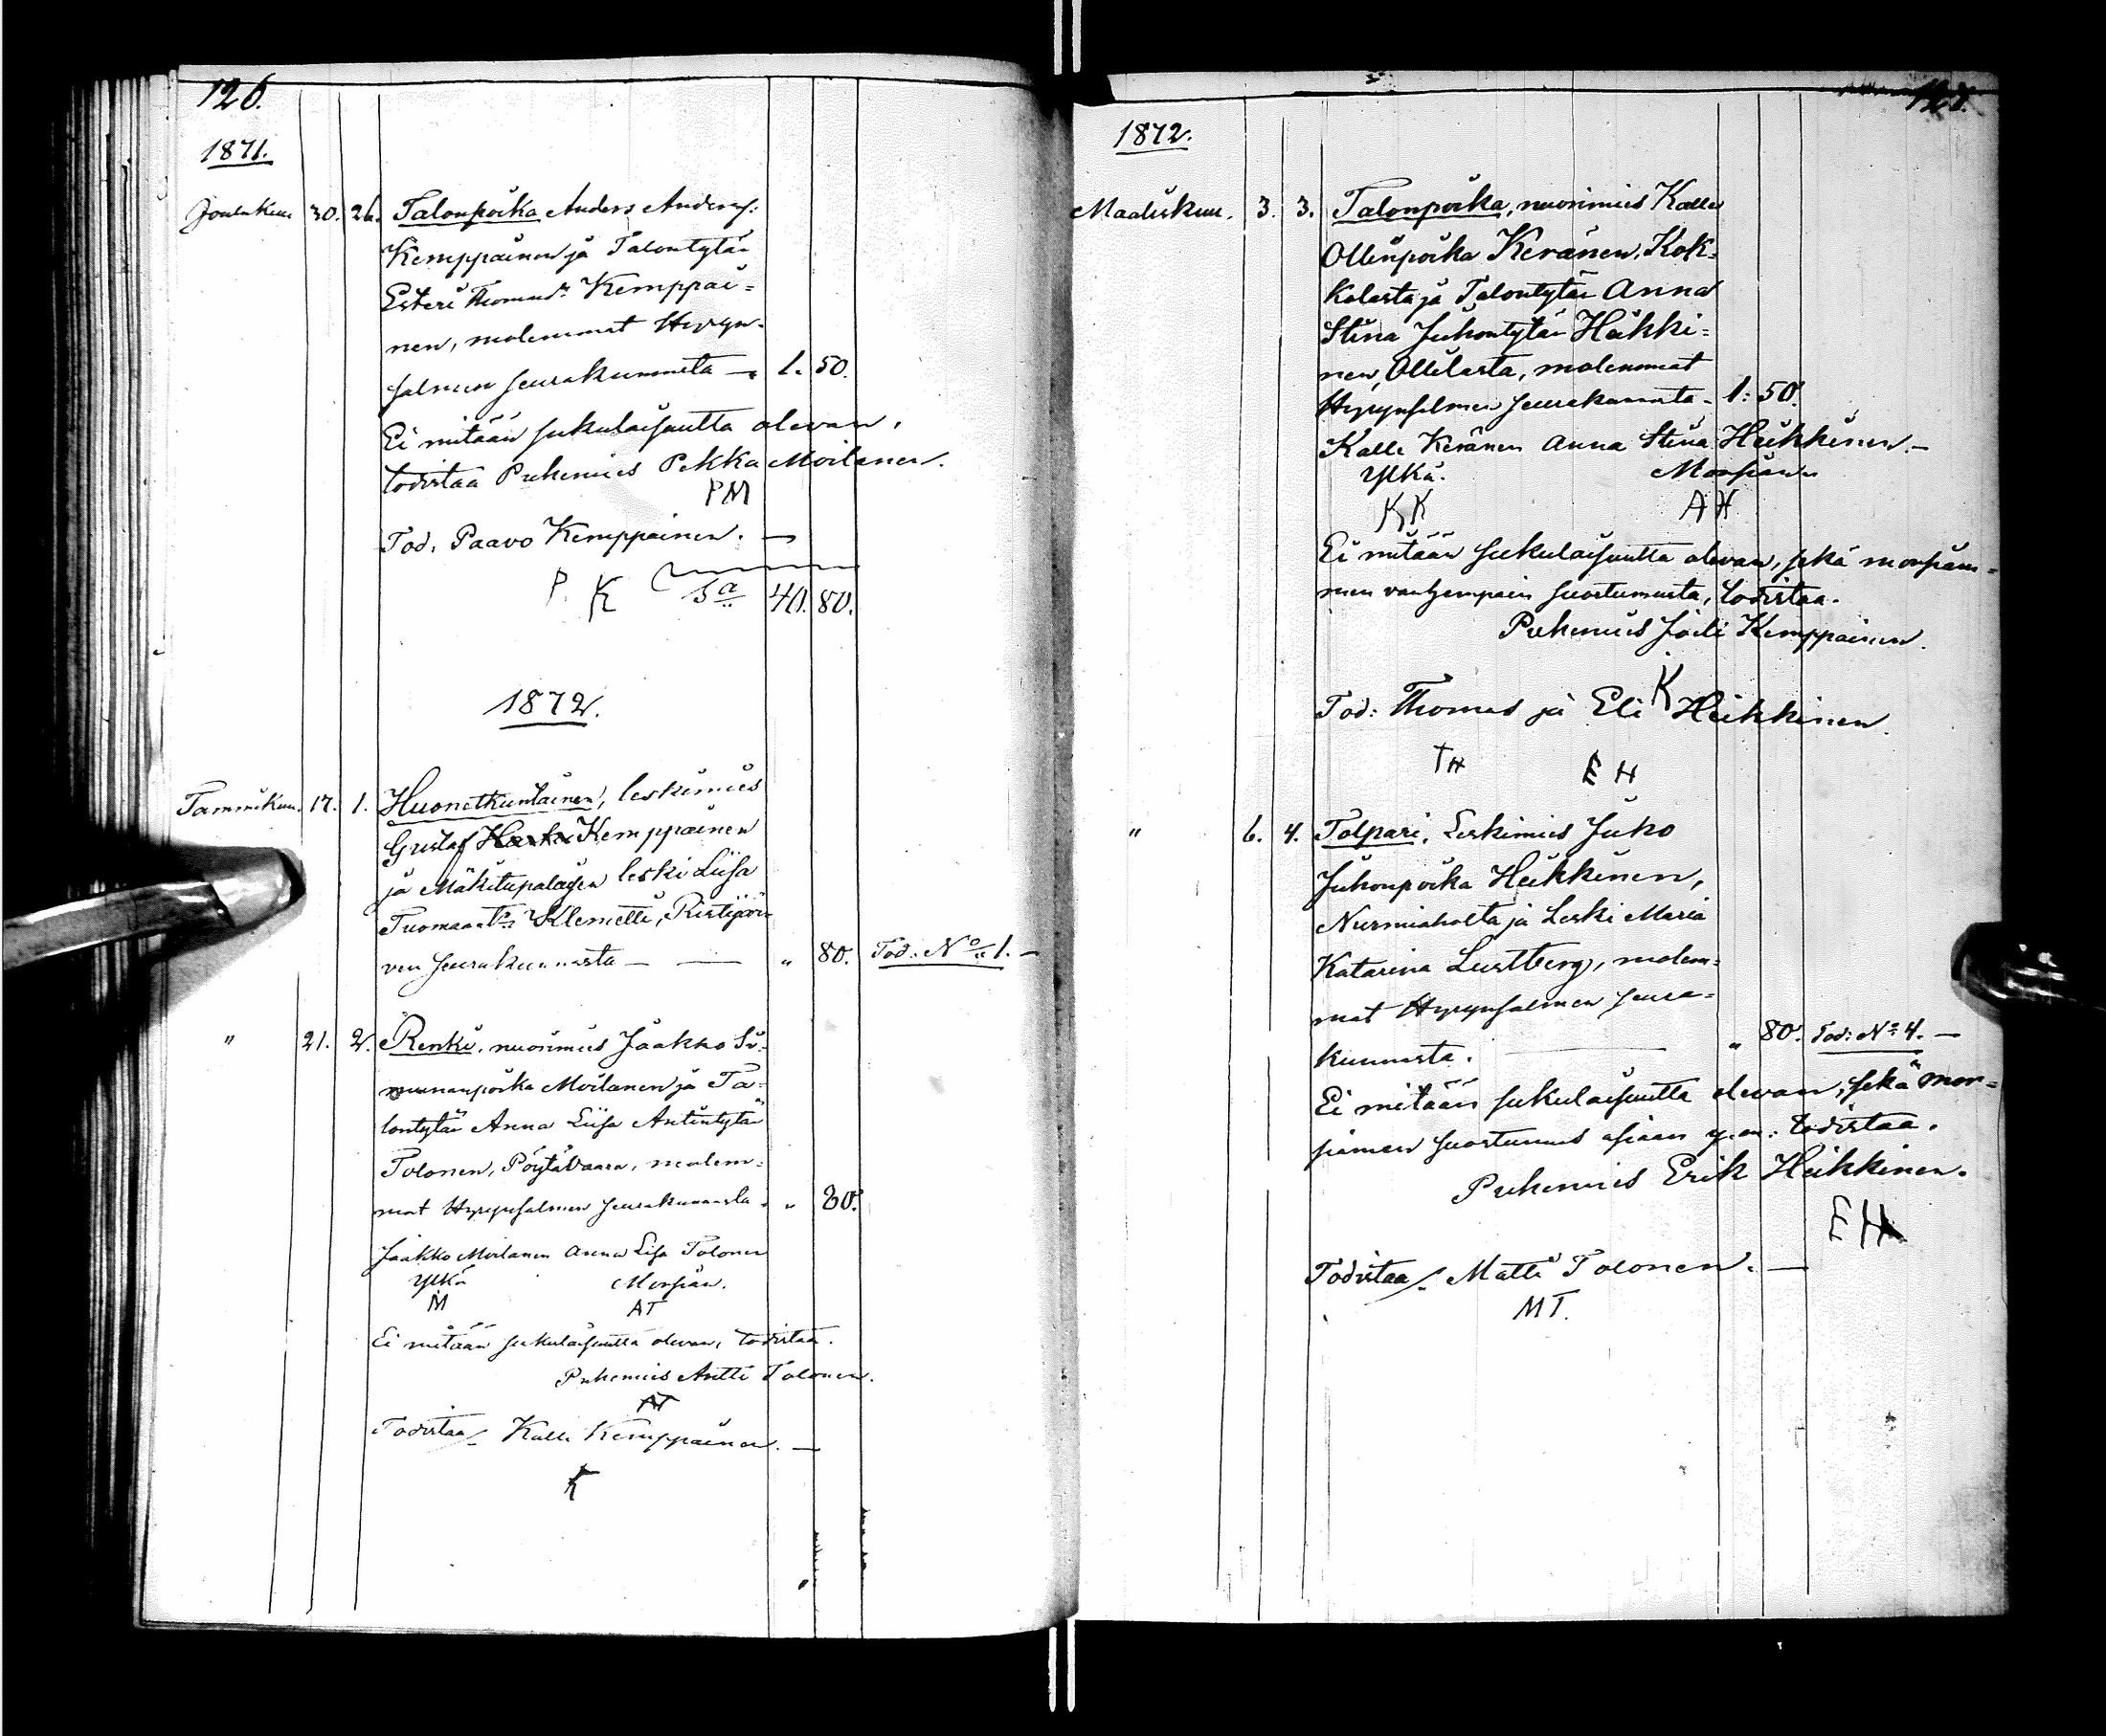 126.
1871.
Joulukuu 30. 26. Talonpoika Anders Anders:
Kemppainen ja Talontytär
Esteri Thomasdr Kemppai=
nen, molemmat Hyryn-
salmen seurakunnasta — 1. 50.
Ei mitään sukulaisuutta olevan,
todistaa Puhemies Pekka Moilanen.
PM
Tod. Paavo Kemppainen. —
P. K Sa 40. 80.
1872.
Tammikuu. 17. 1. Huonetkuntainen, leskimies
Gustaf Kemppainen
ja Mäkitupalaisen leski Liisa
Tuomaantr Klemetti, Ristijär-
ven seurakunnasta — — " 80. Tod. No 1. —
" 21. 2. Renki, nuorimies Jaakko Si-
munanpoika Moilanen ja Ta-
lontytär Anna Liisa Antintytär
Tolonen, Pöytävaara, molem-
mat Hyrynsalmen seurakunnasta. " 80.
Jaakko Moilanen Anna Lisa Tolonen
Ylkä Morsian.
M AT
Ei mitään sukulaisuutta olevan, todistaa.
Puhemies Antti Tolonen.
AT
Todistaa Kalle Kemppainen. —
K
127.
1872.
Maaliskuu. 3. 3. Talonpoika, nuorimies Kalle
Ollinpoika Keränen, Kok-
kolasta ja Talontytär Anna
Stina Juhontytär Heikki=
nen, Ollilasta, molemmat
Hyrynsalmen seurakunnasta - 1: 50.
Kalle Keränen Anna Stina Heikkinen. —
Ylkä. Morsian
KK AH
Ei mitään sukulaisuutta olevan, sekä morsiam=
men vanhempain suostumusta, todistaa.
Puhemies Kemppainen.
K
Tod: Thomas ja Eli Heikkinen.
TH EH
" 6. 4. Tolpari, Leskimies Juho
Juhonpoika Heikkinen,
Nurmiaholta ja Leski Maria
Katarina Lustberg, molem=
mat Hyrynsalmen seura=
kunnasta. — " 80. Tod: No 4. —
Ei mitään sukulaisuutta olevan, sekä mor=
siamen suostumus asiaan y.m: todistaa.
Puhemies Erik Heikkinen.
EH
Todistaa Matti Tolonen. —
MT.